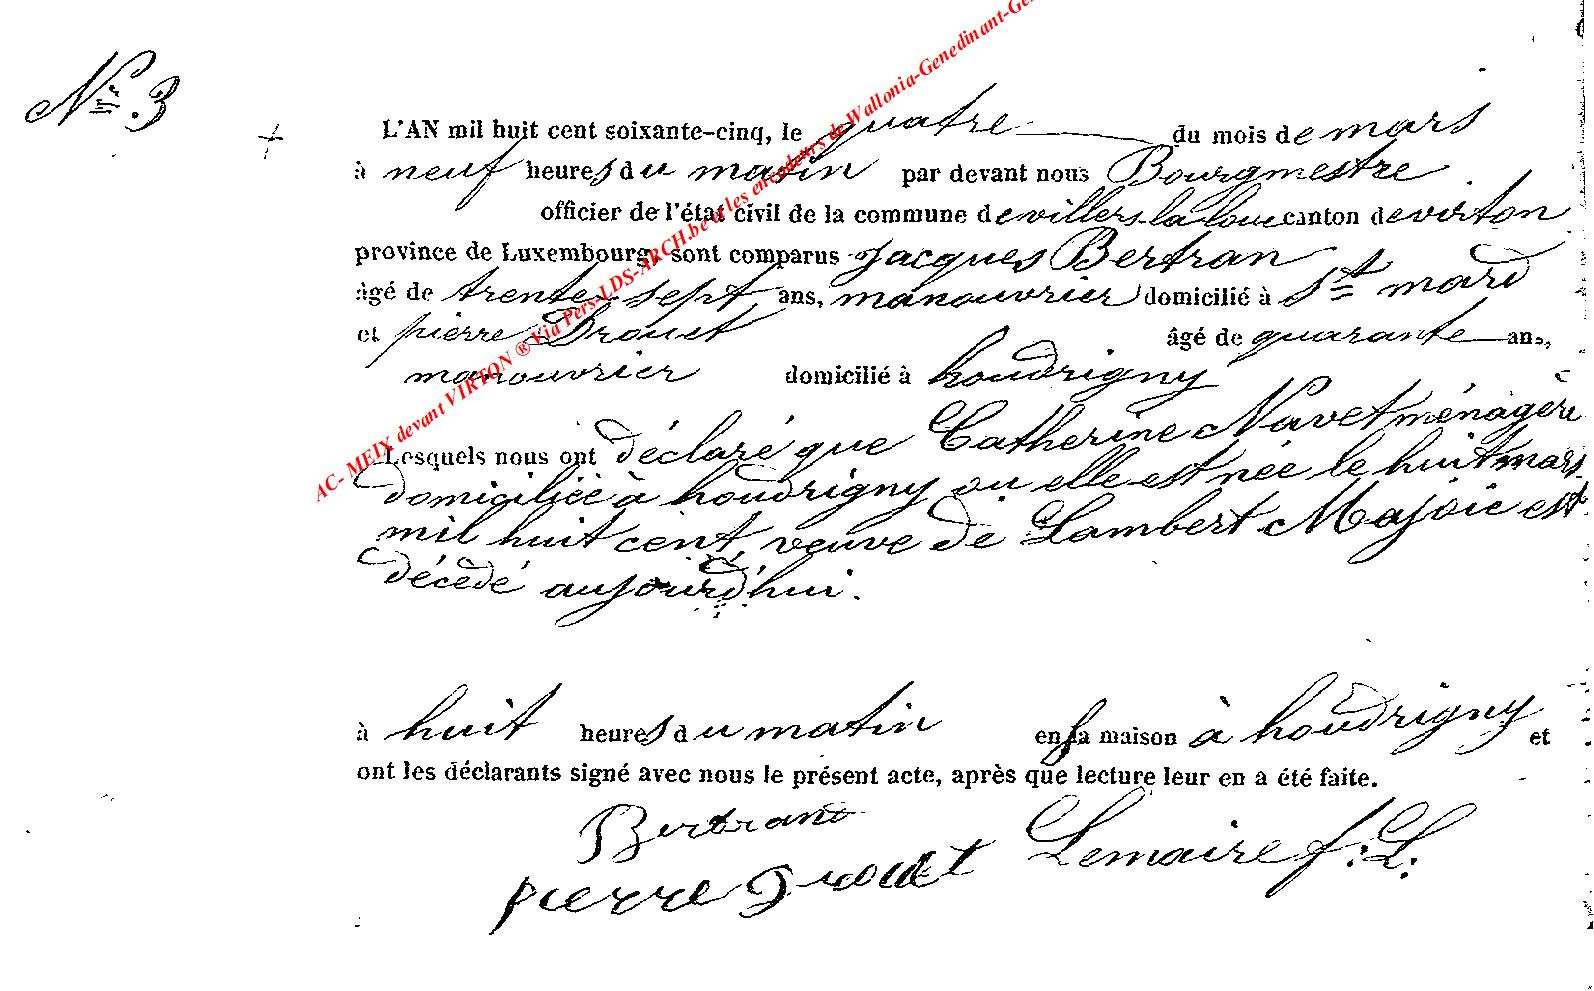 N° 3
L'AN mil huit cent soixante-cinq, le quatre du mois de mars
à neuf heures du matin par devant nous Bourgmestre
officier de l'état civil de la commune de villers-la-loue canton de virton
province de Luxembourg, sont comparus Jacques Bertran
âgé de trente-sept ans, manouvrier domicilié à St mard
et pierre Drouet âgé de quarante ans,
manouvrier domicilié à houdrigny
Lesquels nous ont déclaré que Catherine Navet ménagère
domiciliée à houdrigny ou elle est née le huit mars
mil huit cent, veuve de Lambert Majoie est
décédé aujourd'hui.
à huit heures du matin en sa maison à houdrigny et
ont les déclarants signé avec nous le présent acte, après que lecture leur en a été faite.
Bertrand
pierre Drouet Lemaire f: L:
AC- MEIX devant VIRTON ® Via Pers-LDS-ARCH.be et les encodeurs de Wallonia-Genedinant-Ge